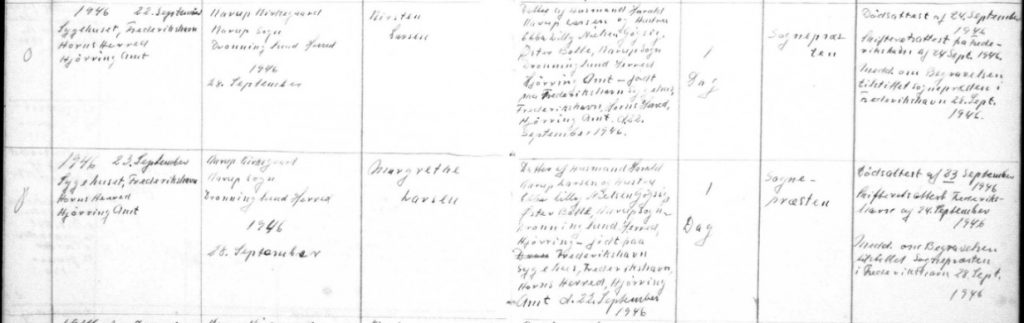 1946 22. September
Sygehuset, Frederikshavn
Horns Herred
Hjørring Amt
Sogn
Dronninglund Herred
1946
28. September
Kirsten
Larsen
Datter af Husmand Harald
Larsen og Hustru
Ebba Lilly Nielsen
Øster Bolle, Sogn
Dronninglund Herred
Hjørring Amt – født
paa Frederikshavn
Frederikshavn, Horns Herred,
Hjørring Amt. d. 22.
September 1946.
1
Dag
Sognepræs-
ten
Dødsattest af 24. September
1946
Skifteretsattest fra Frede-
rikshavn af 24 Sept. 1946.
Medd. om Begravelsen
tilstillet Sognepræsten i
Frederikshavn 28. Sept.
1946.
1946 23. September
Sygehuset, Frederikshavn
Horns Herred
Hjørring Amt
Sogn
Dronninglund Herred
1946
28. September
Margrethe
Larsen
Datter af Husmand Harald
Larsen og Hustru
Ebba Lilly Nielsen
Øster Bolle, Sogn
Dronninglund Herred,
Hjørring – født paa
Frederikshavn
Sygehus, Frederikshavn,
Horns Herred, Hjørring
Amt d. 22. September
1946
1
Dag
Sogne-
præsten
Dødsattest af 23 September
1946
Skifteretsattest Frederiks-
havn af 24. September
1946
Medd. om Begravelsen
tilstillet Sognepræsten
i Frederikshavn 28. Sept.
1946